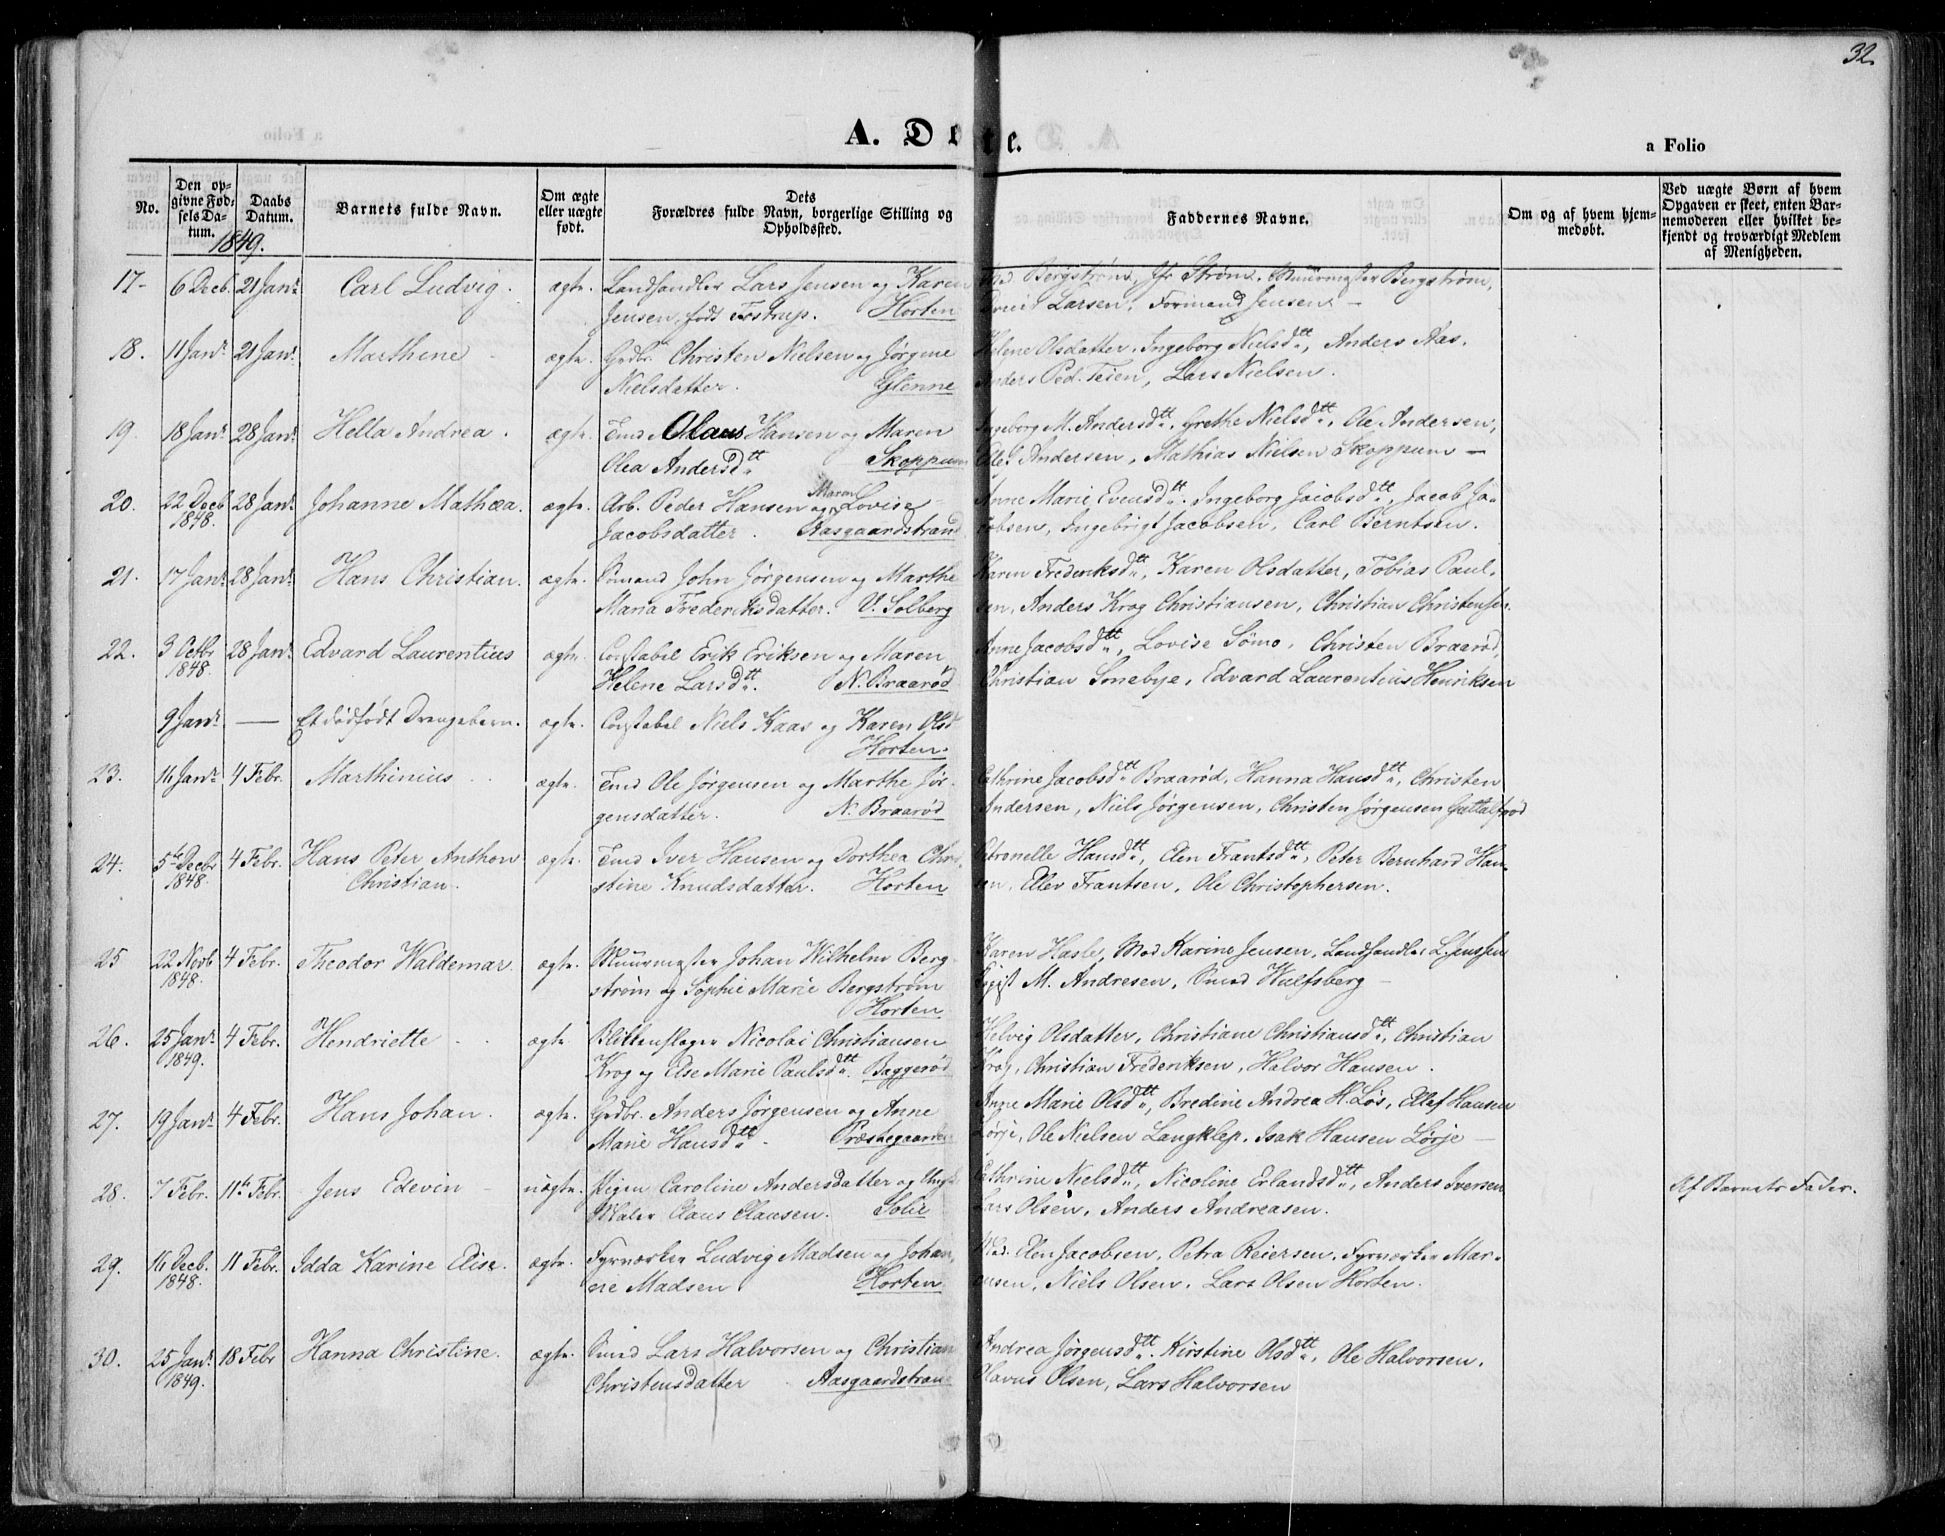 32.
A. Døbte.
a Folio
No.
Den opgivne Fødsels Datum.
Daabs Datum.
Barnets fulde Navn.
Om ægte eller uægte født.
Dets Forældres fulde Navn, borgerlige Stilling og Opholdssted.
Faddernes Navne.
Om og af hvem hjemmedøbt.
Ved uægte Børn af hvem Opgaven er skeet, enten Barnemoderen eller hvilket bekjendt og troværdigt Medlem af Menigheden.
1849.
17- 6 Decb. 21 Janr. Carl Ludvig. ægte. Landhandler Lars Jensen og Karen Bergstrøm, Jfr Strøm. Muurmester Bergstrøm,
Jensen, født Tostrup. Horten Larsen, Formand Jensen –
18. 11 Janr. 21 Janr. Marthine ægte. Grdbr. Christen Nielsen og Jørgine Helene Olsdatter. Ingeborg Nielsdtt., Anders Aas.
Nielsdatter. Glenne Anders Ped. Teien, Lars Nielsen.
19. 18 Janr. 28 Janr. Hella Andrea. ægte. Tmd Olaus Hansen og Maren Ingeborg M. Andersdtt., Grethe Nielsdtt., Ole Andersen,
Olea Andersdtt. Skoppum Andersen, Mathias Nielsen Skoppum –
20. 22 Decb 28 Janr. Johanne Mathea. ægte. Arb. Peder Hansen og Maren Lovise Anne Marie Evensdtt. Ingeborg Jacobsdtt., Jacob Ja-
1848. Jacobsdatter. Aasgaardstrand cobsen, Ingebrigt Jacobsen, Carl Berntsen.
21. 17 Janr. 28 Janr. Hans Christian. ægte. Sømand John Jørgensen og Marthe Karen Frederiksdtt., Karen Olsdatter, Tobias Paul-
Maria Frederiksdatter. V. Solberg sen, Anders Krog Christiansen, Christian Christensen.
22. 3 Octbr 28 Janr. Edvard Laurentius ægte. Constabel Erik Eriksen og Maren Anne Jacobsdtt., Lovise Sømo, Christen Braarød,
1848. Helene Larsdtt. N. Braarød Christian Snebye, Edvard Laurentius Henriksen
9 Janr. — Et dødfødt Drengebarn. ægte. Constabel Niels Kaas og Karen Olsd-
Horten.
23. 16 Janr. 4 Febr. Marthinius ægte. Tmd Ole Jørgensen og Marthe Jør- Cathrine Jacobsdtt. Braarød, Hanna Hansdtt., Christen
gensdatter. N. Braarød Andersen, Niels Jørgensen, Christen Jørgensen
24. 5te Decbr 4 Febr. Hans Peter Anthon ægte. Tmd Iver Hansen og Dorthea Chri- Petronelle Hansdtt., Elen Frantsdtt., Peter Bernhard Han-
1848. Christian. stine Knudsdatter. Horten sen, Ellev Frantsen, Ole Christophersen.
25 22 Novb 4 Febr. Theodor Waldemar. ægte. Muurmester Johan Wilhelm Berg- Karen Hasle, Mad Karine Jensen, Landhandler L. Jenssen
1848. strøm og Sophie Marie Bergstrøm M. Andresen, Smed Wulfsberg –
Horten
26. 25 Janr. 4 Febr. Hendriette ægte Blikkenslager Nicolai Christiansen Helvig Olsdatter, Christiane Christiansdtt., Christian
1849. Krog og Else Marie Paulsdtt. Baggerød Krog, Christian Frederiksen, Halvor Hansen.
27. 19 Janr. 4 Febr. Hans Johan. ægte. Grdbr. Anders Jørgensen og Anne Anne Marie Olsdtt., Bredine Andrea H. Løs, Ellef Hansen
Marie Hansdtt. Præstegaarden Lørje, Ole Nielsen Langklep. Isak Hansen Lørje –
28. 7 Febr. 11te Febr. Jens Edevin – uægte. Pigen Caroline Andersdatter og Ungk. Cathrine Nielsdtt., Nicoline Erlandsdtt., Anders Iversen Af Barnets Fader.
Maler Claus Clausen. Solie Lars Olsen, Anders Andreasen.
29. 16 Decb. 11 Febr. Idda Karine Elise. ægte. Fyrværker Ludvig Madsen og Johan- Mad. Elen Jacobsen, Petra Reiersen. Fyrværker Mar-
1848. ne Madsen Horten Niels Olsen, Lars Olsen Horten.
30. 25 Janr. 18 Febr Hanna Christine. ægte. Smed Lars Halvorsen og Christian Andrea Jørgensdtt. Kirstine Olsdtt., Ole Halvorsen.
1849. Christensdatter Aasgaardstran Olavus Olsen, Lars Halvorsen